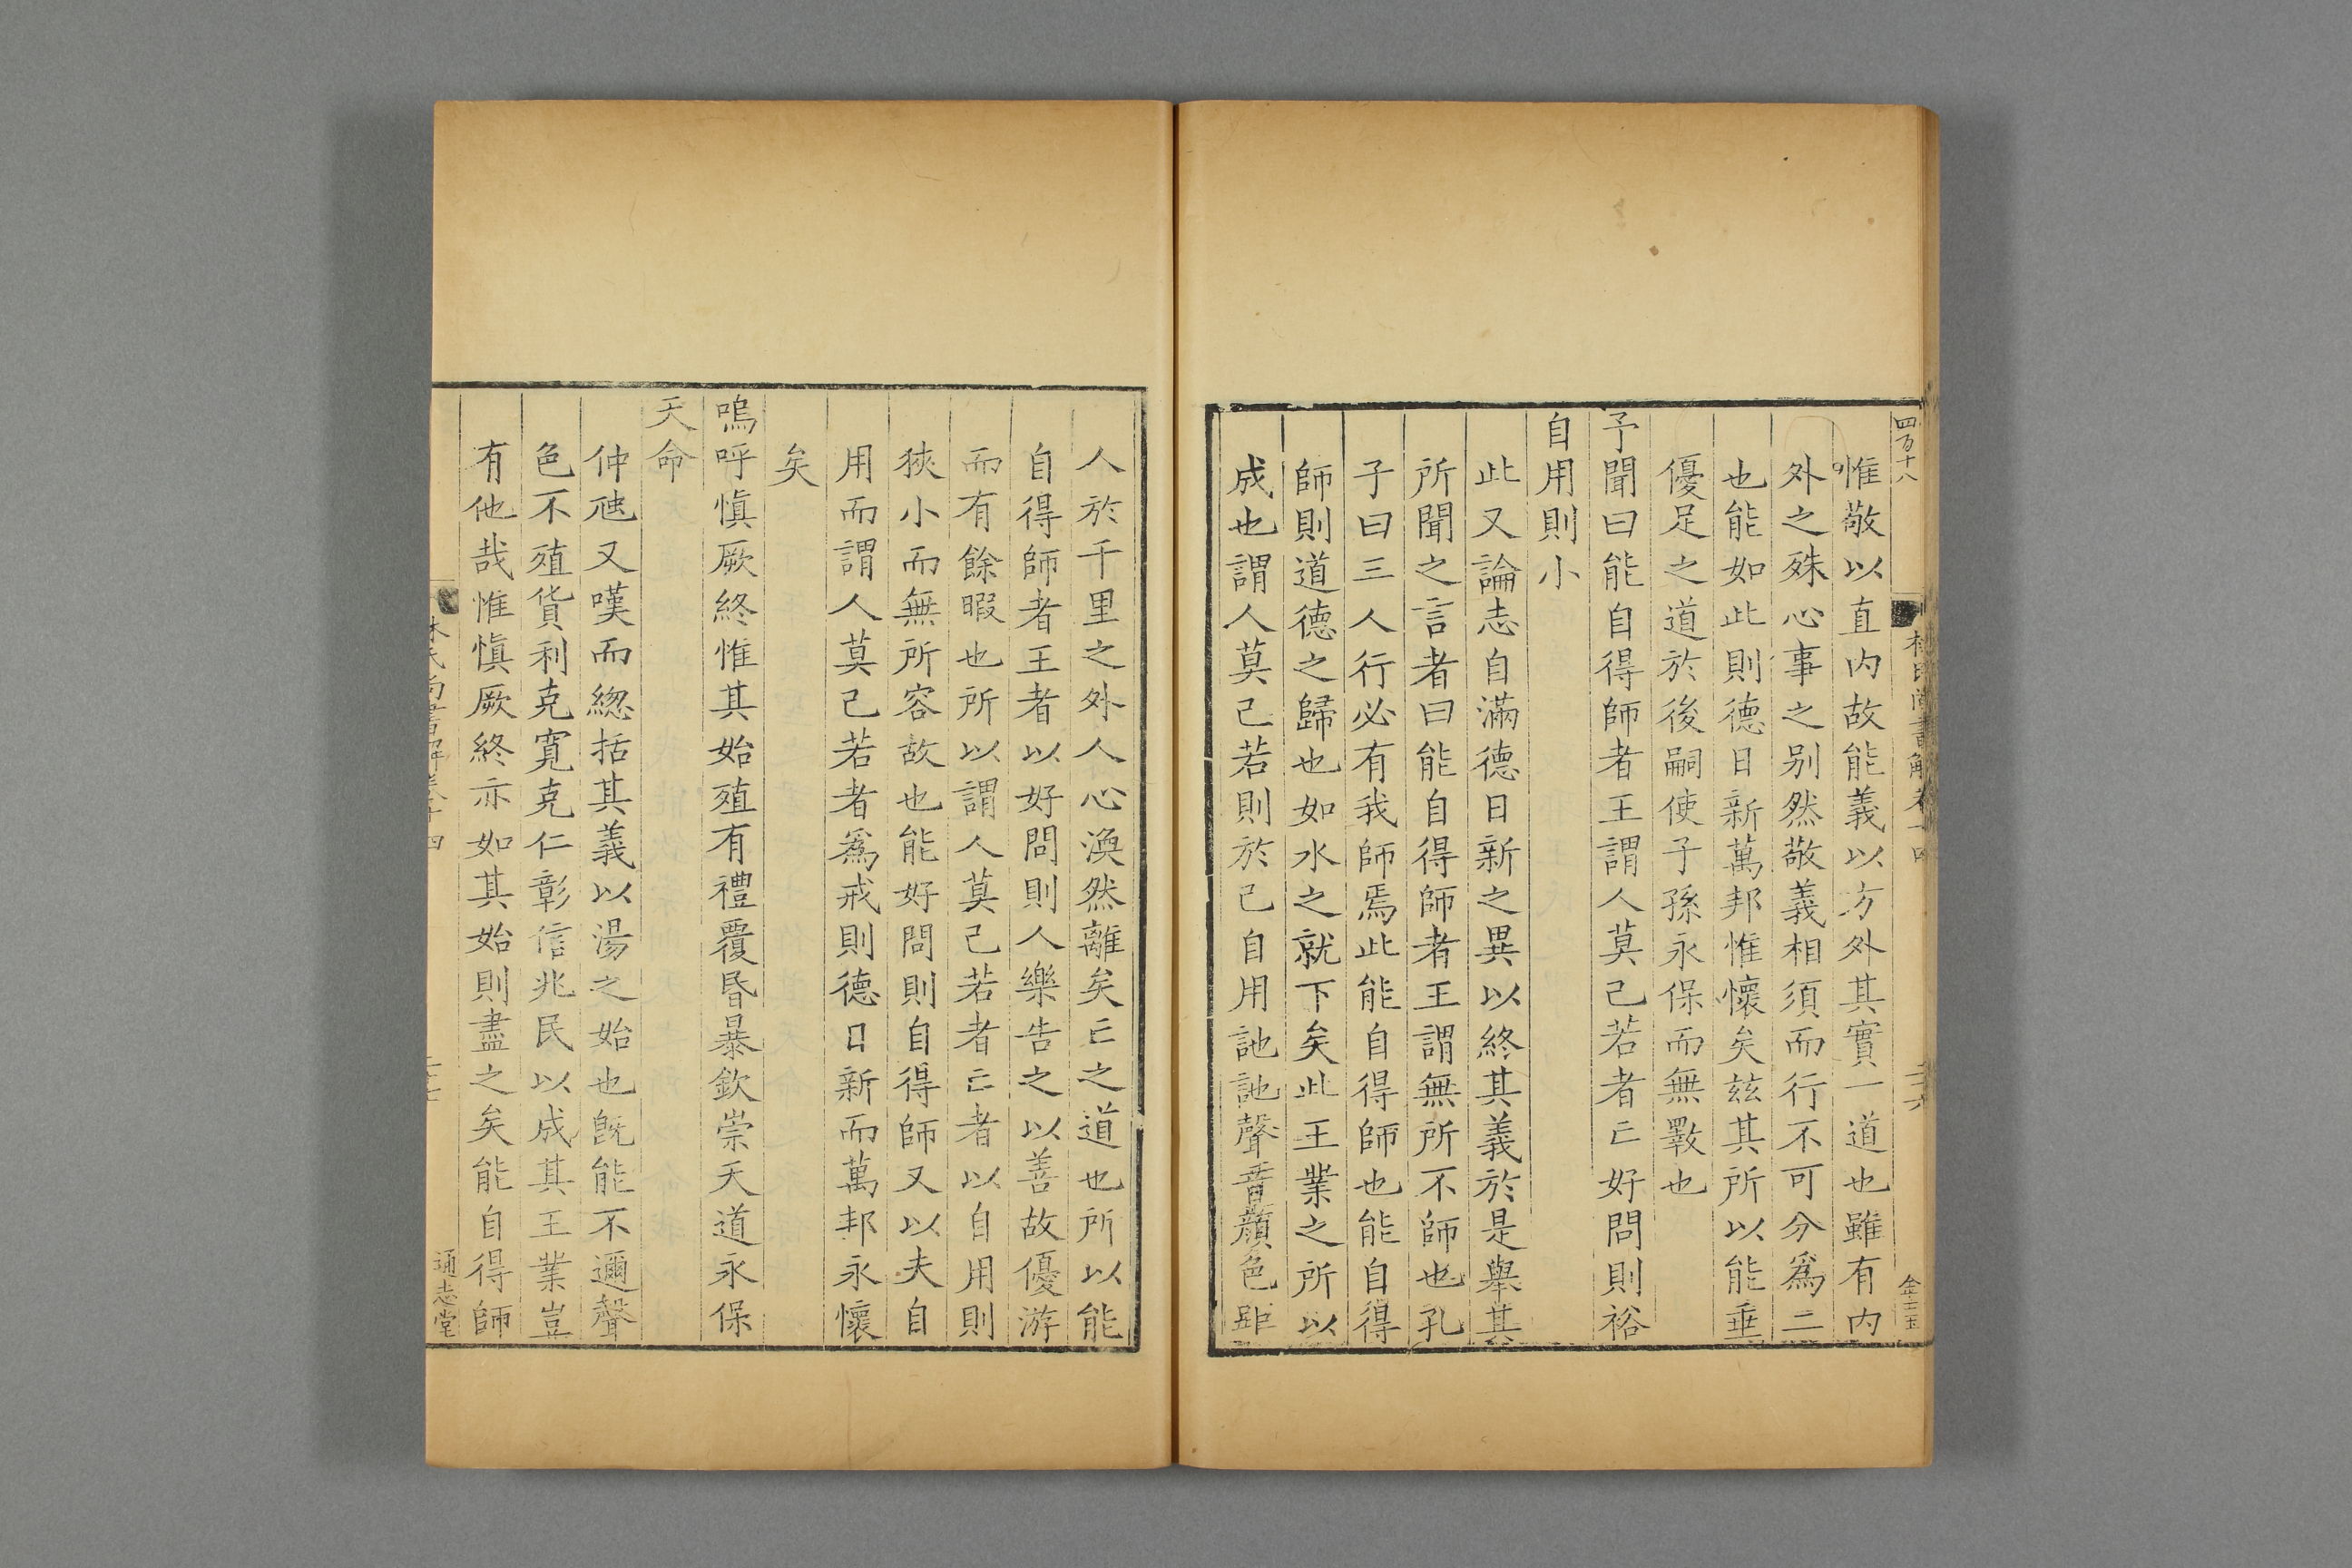 四百十八
林氏尚書解卷十四
二六
金玉
惟敬以直内故能義以方外其實一道也雖有内
外之殊心事之别然敬義相須而行不可分爲二
也能如此則德日新萬邦惟懷矣兹其所以能垂
優足之道於後嗣使子孫永保而無斁也
予聞曰能自得師者王謂人莫己若者亡好問則裕
自用則小
此又論志自滿德日新之異以終其義於是舉其
所聞之言者曰能自得師者王謂無所不師也孔
子曰三人行必有我師焉此能自得師也能自得
師則道德之歸也如水之就下矣此王業之所以
成也謂人莫己若則於己自用訑訑聲音顏色距
人於千里之外人心渙然離矣亡之道也所以能
自得師者王者以好問則人樂告之以善故優游
而有餘暇也所以謂人莫己若者亡者以自用則
狹小而無所容故也能好問則自得師又以夫自
用而謂人莫己若者爲戒則德日新而萬邦永懷
矣
嗚呼愼厥終惟其始殖有禮覆昬暴欽崇天道永保
天命
仲虺又嘆而緫括其義以湯之始也旣能不邇聲
色不殖貨利克寬克仁彰信兆民以成其王業豈
有他哉惟愼厥終亦如其始則盡之矣能自得師
林氏尚書解卷十四
通志堂